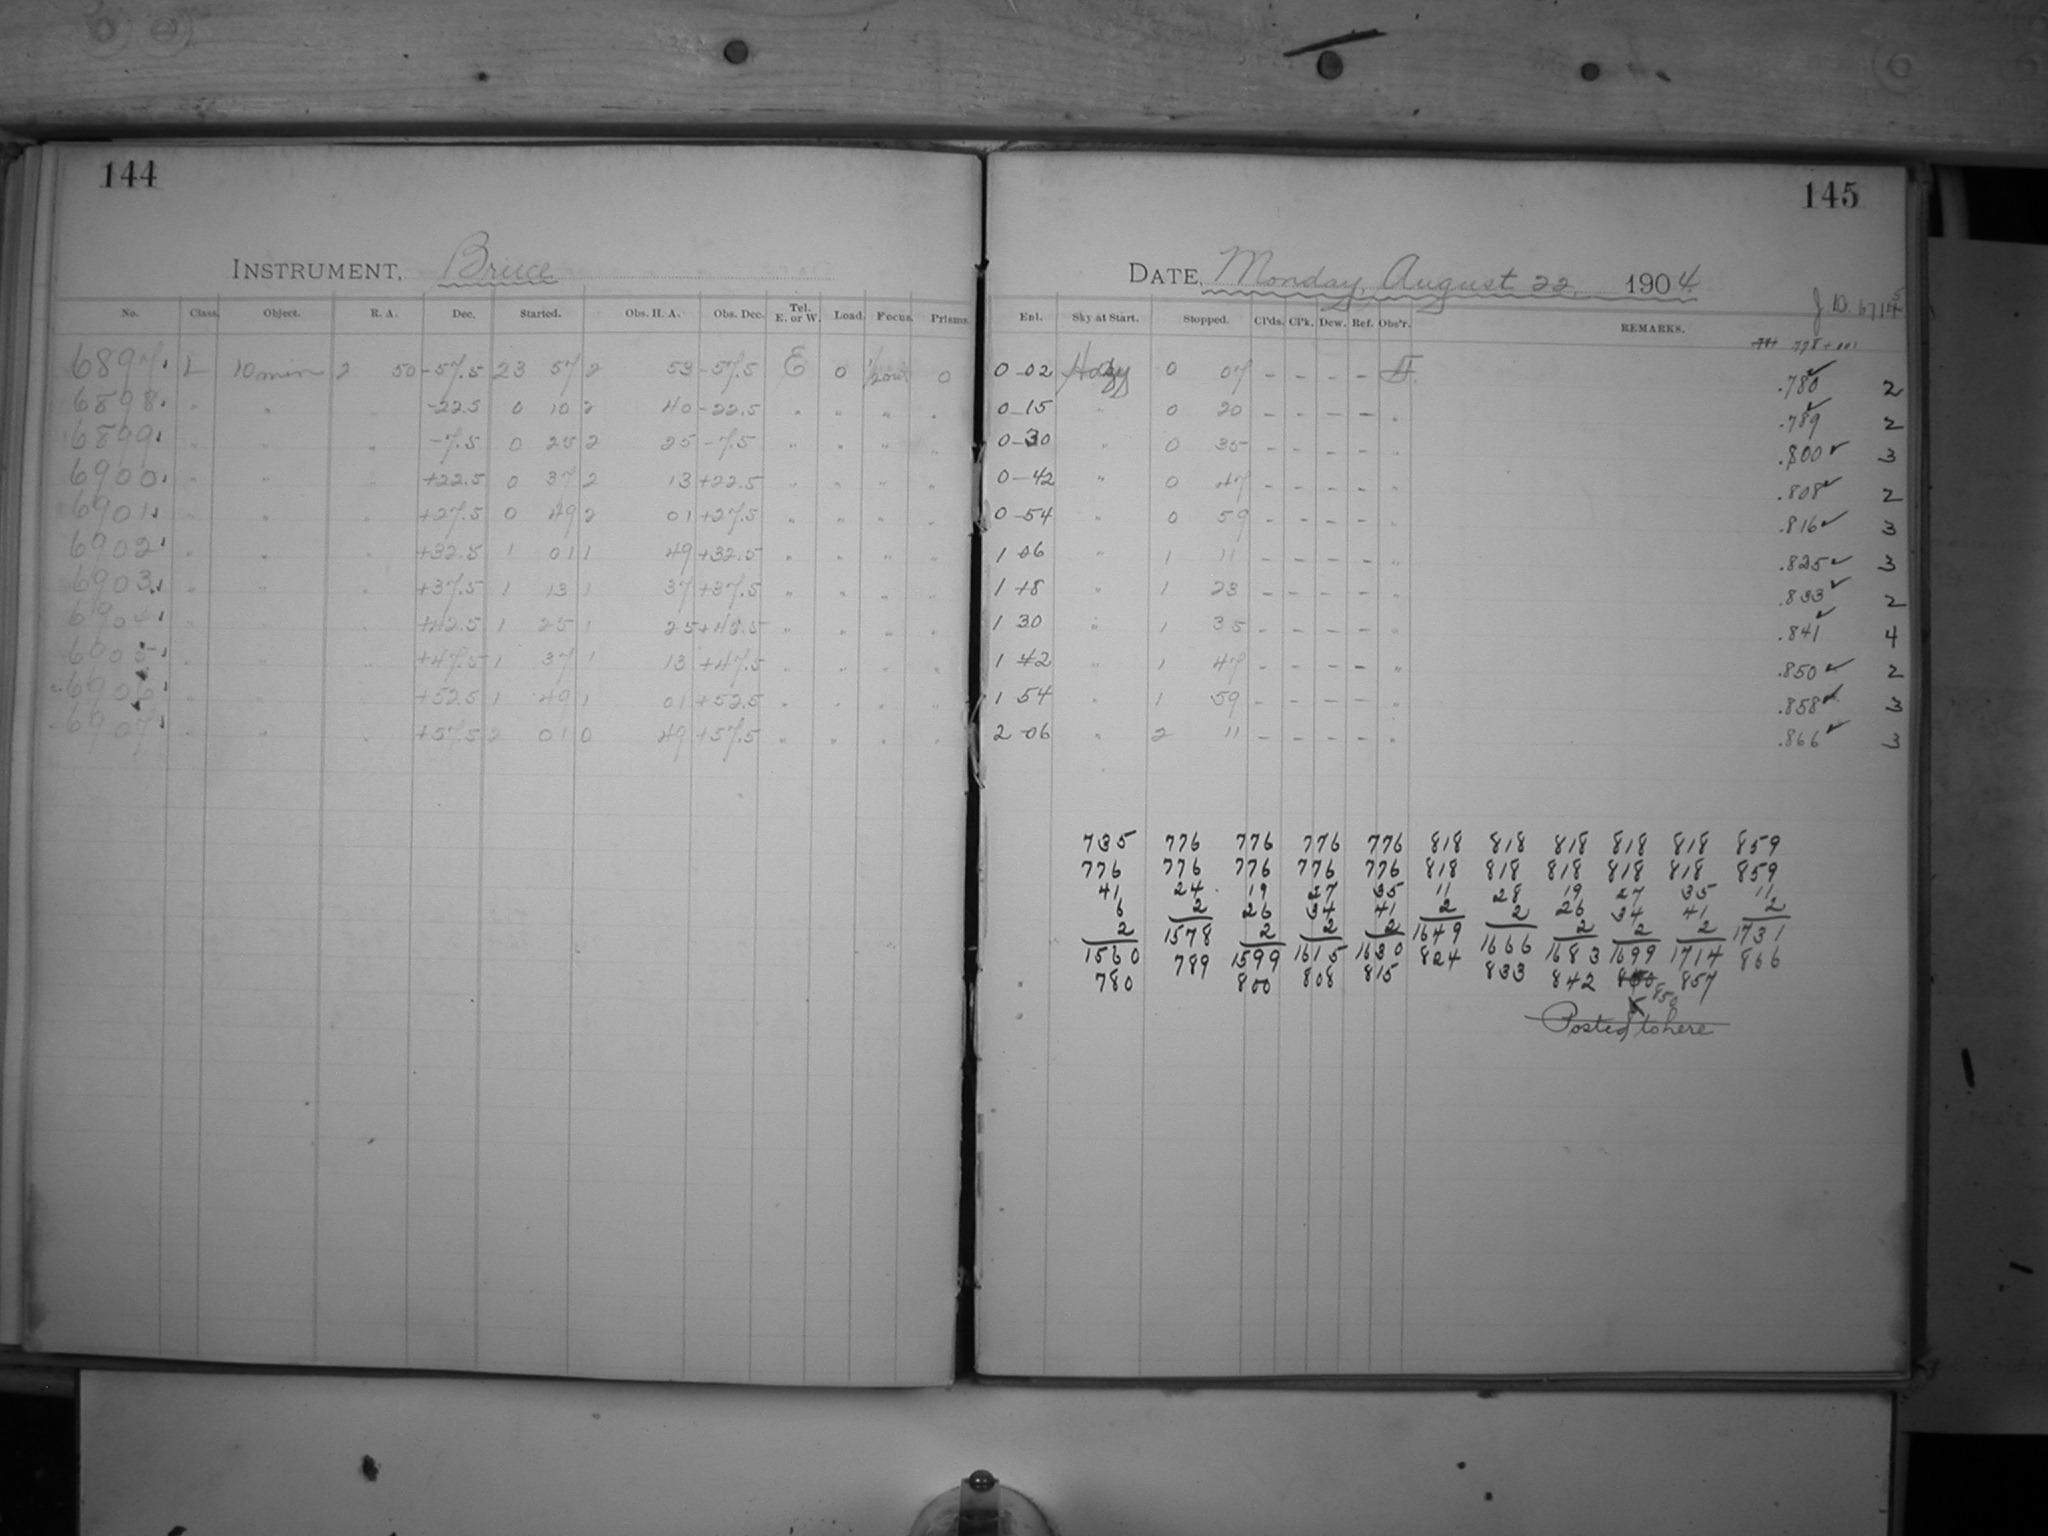 144
INSTRUMENT, Bruce
No. Class. Object. R. A. Dec. Started. Obs. H. A. Obs. Dec. Tel. E. or W. Load. Focus. Prisms.
6897 L 10 min 2 50 -57.5 23 57 2 53 -57.5 E 0 0
6898 " " " -22.5 0 10 2 40 -22.5 " " " "
6899 " " " -7.5 0 25 2 25 -7.5 " " " "
6900 " " " +22.5 0 37 2 13 +22.5 " " " "
6901 " " " +27.5 0 49 2 01 +27.5 " " " "
6902 " " " +32.5 1 01 1 49 +32.5 " " " "
6903 " " " +37.5 1 13 1 37 +37.5 " " " "
6904 " " " +42.5 1 25 1 25 +42.5 " " " "
6905 " " " +47.5 1 37 1 13 +47.5 " " " "
6906 " " " +52.5 1 49 1 01 +52.5 " " " "
6907 " " " +57.5 2 01 0 49 +57.5 " " " "
145
DATE, Monday, August 22, 1904
J. D. 6715
Enl. Sky at Start. Stopped. Cl'ds. Cl'k. Dew. Ref. Obs'r. REMARKS.
778 + 001
0-02 Hazy 0 07 - - - - .780 ✓ 2
0-15 " 0 20 - - - - " .789 ✓ 2
0-30 " 0 35 - - - - " .800 ✓ 3
0-42 " 0 47 - - - - " .808 ✓ 2
0-54 " 0 59 - - - - " .816 ✓ 3
1 06 " 1 11 - - - - " .825 ✓ 3
1 18 " 1 23 - - - - " .833 ✓ 2
1 30 " 1 35 - - - - " .841 ✓ 4
1 42 " 1 47 - - - - " .850 ✓ 2
1 54 " 1 59 - - - - " .858 ✓ 3
2 06 " 2 11 - - - - " .866 ✓ 3
735 776 776 776 776 818 818 818 818 818 859
776 776 776 776 776 818 818 818 818 818 859
41 24 19 27 35 11 28 19 27 35 11
6 2 26 34 41 2 2 26 34 41 2
2 1578 2 2 2 1649 1666 2 2 2 1731
1560 789 1599 1615 1630 824 833 1683 1699 1714 866
780 800 808 815 842 850 857
Posted to here